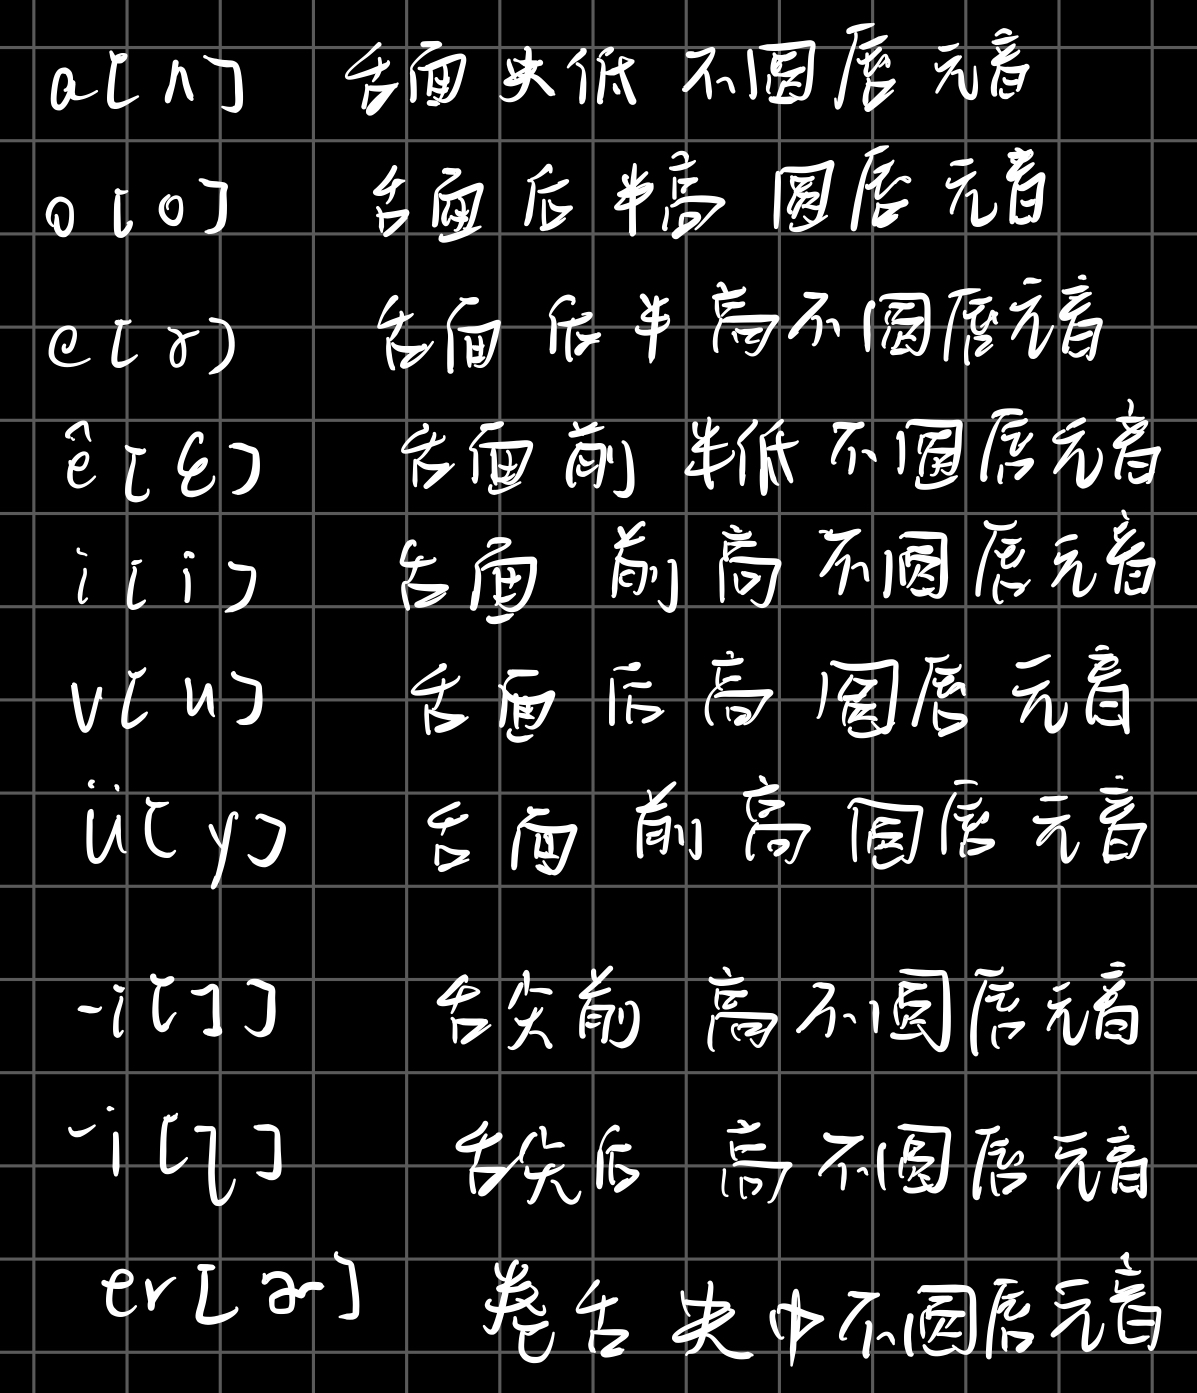 a[ʌ] 舌面央低不圆唇元音
o[o] 舌面后半高圆唇元音
e[ɤ] 舌面后半高不圆唇元音
ê[ɛ] 舌面前半低不圆唇元音
i[i] 舌面前高不圆唇元音
u[u] 舌面后高圆唇元音
ü[y] 舌面前高圆唇元音
-i[ɿ] 舌尖前高不圆唇元音
-i[ʅ] 舌尖后高不圆唇元音
er[ɚ] 卷舌央中不圆唇元音